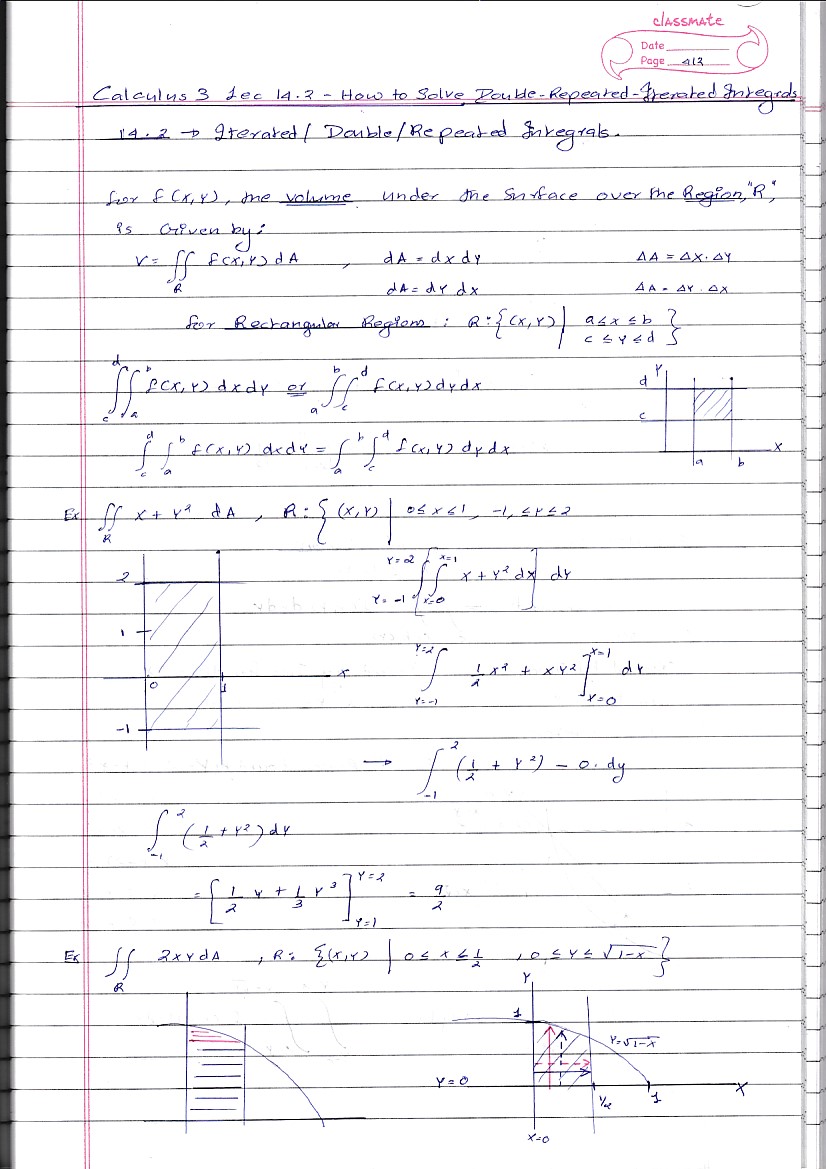 classmate
Date
Page 413
Calculus 3 Lec 14.2 - How to Solve Double-Repeated-Iterated Integrals
14.2 → Iterated / Double / Repeated Integrals.
For f(x,y), the volume under the surface over the Region, "R",
is Given by:
V = ∬_R f(x,y) dA , dA = dx dy ΔA = Δx · Δy
dA = dy dx ΔA = Δy · Δx
For Rectangular Regions : R:{(x,y) | a ≤ x ≤ b
c ≤ y ≤ d }
∫_c^d ∫_a^b f(x,y) dx dy or ∫_a^b ∫_c^d f(x,y) dy dx
y
d
c
a b x
∫_c^d ∫_a^b f(x,y) dx dy = ∫_a^b ∫_c^d f(x,y) dy dx
Ex ∬_R x + y² dA , R:{ (x,y) | 0 ≤ x ≤ 1, -1, ≤ y ≤ 2
2
1
0 1 x
-1
∫_{y=-1}^{y=2} [ ∫_{x=0}^{x=1} x + y² dx ] dy
∫_{y=-1}^{y=2} 1/2 x² + xy² ]_{x=0}^{x=1} dy
→ ∫_{-1}^{2} (1/2 + y²) - 0. dy
∫_{-1}^{2} (1/2 + y²) dy
= [ 1/2 y + 1/3 y³ ]_{y=1}^{y=2} = 9/2
Ex ∬_R 2xy dA , R: {(x,y) | 0 ≤ x ≤ 1/2 , 0 ≤ y ≤ √1-x }
y
1
y=√1-x
y=0
1/2 1 x
x=0